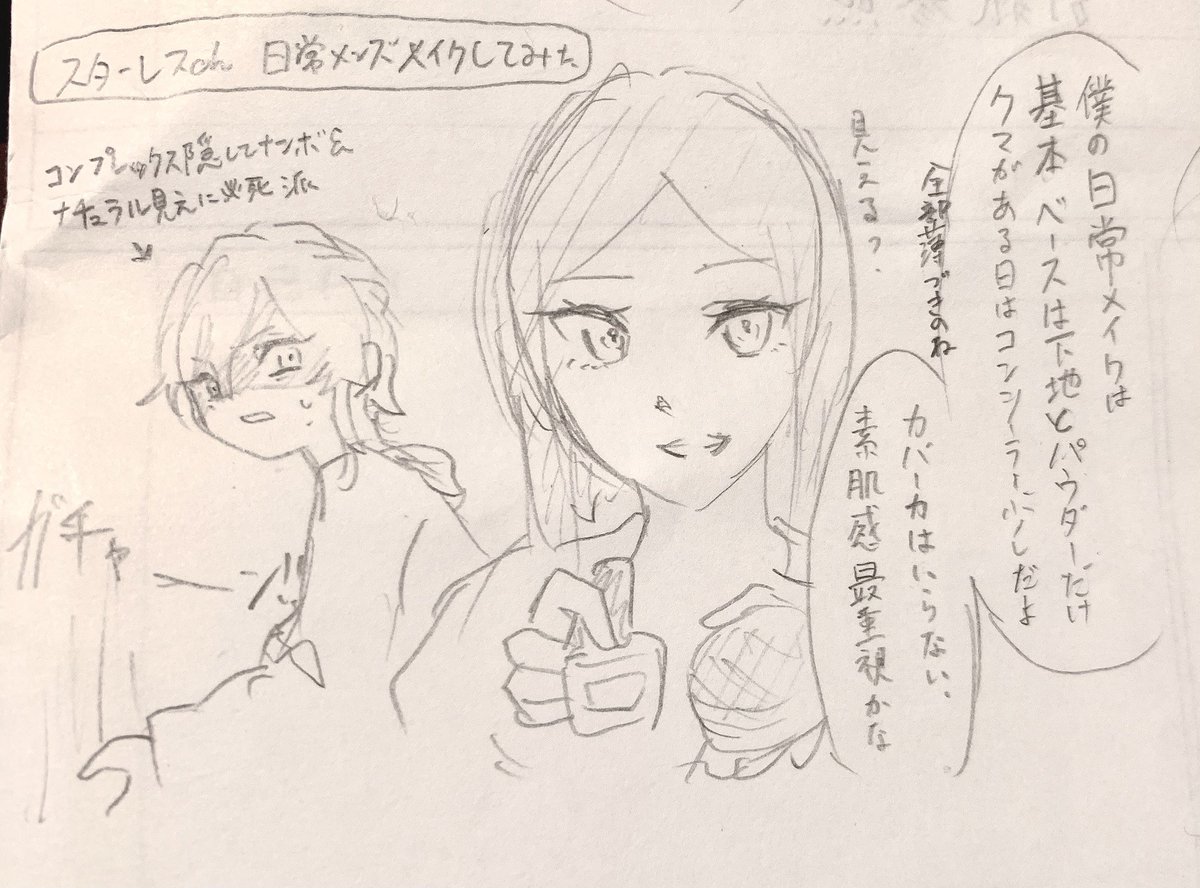 スターレスch 日常メンズメイクしてみた
コンプレックス隠してナンボ&
ナチュラル見えに必死派
僕の日常メイクは
基本ベースは下地とパウダーだけ
クマがある日はコンシーラー少しだよ
全部薄づきのね
見える?
カバー力はいらない、
素肌感最重視かな
ガチャ